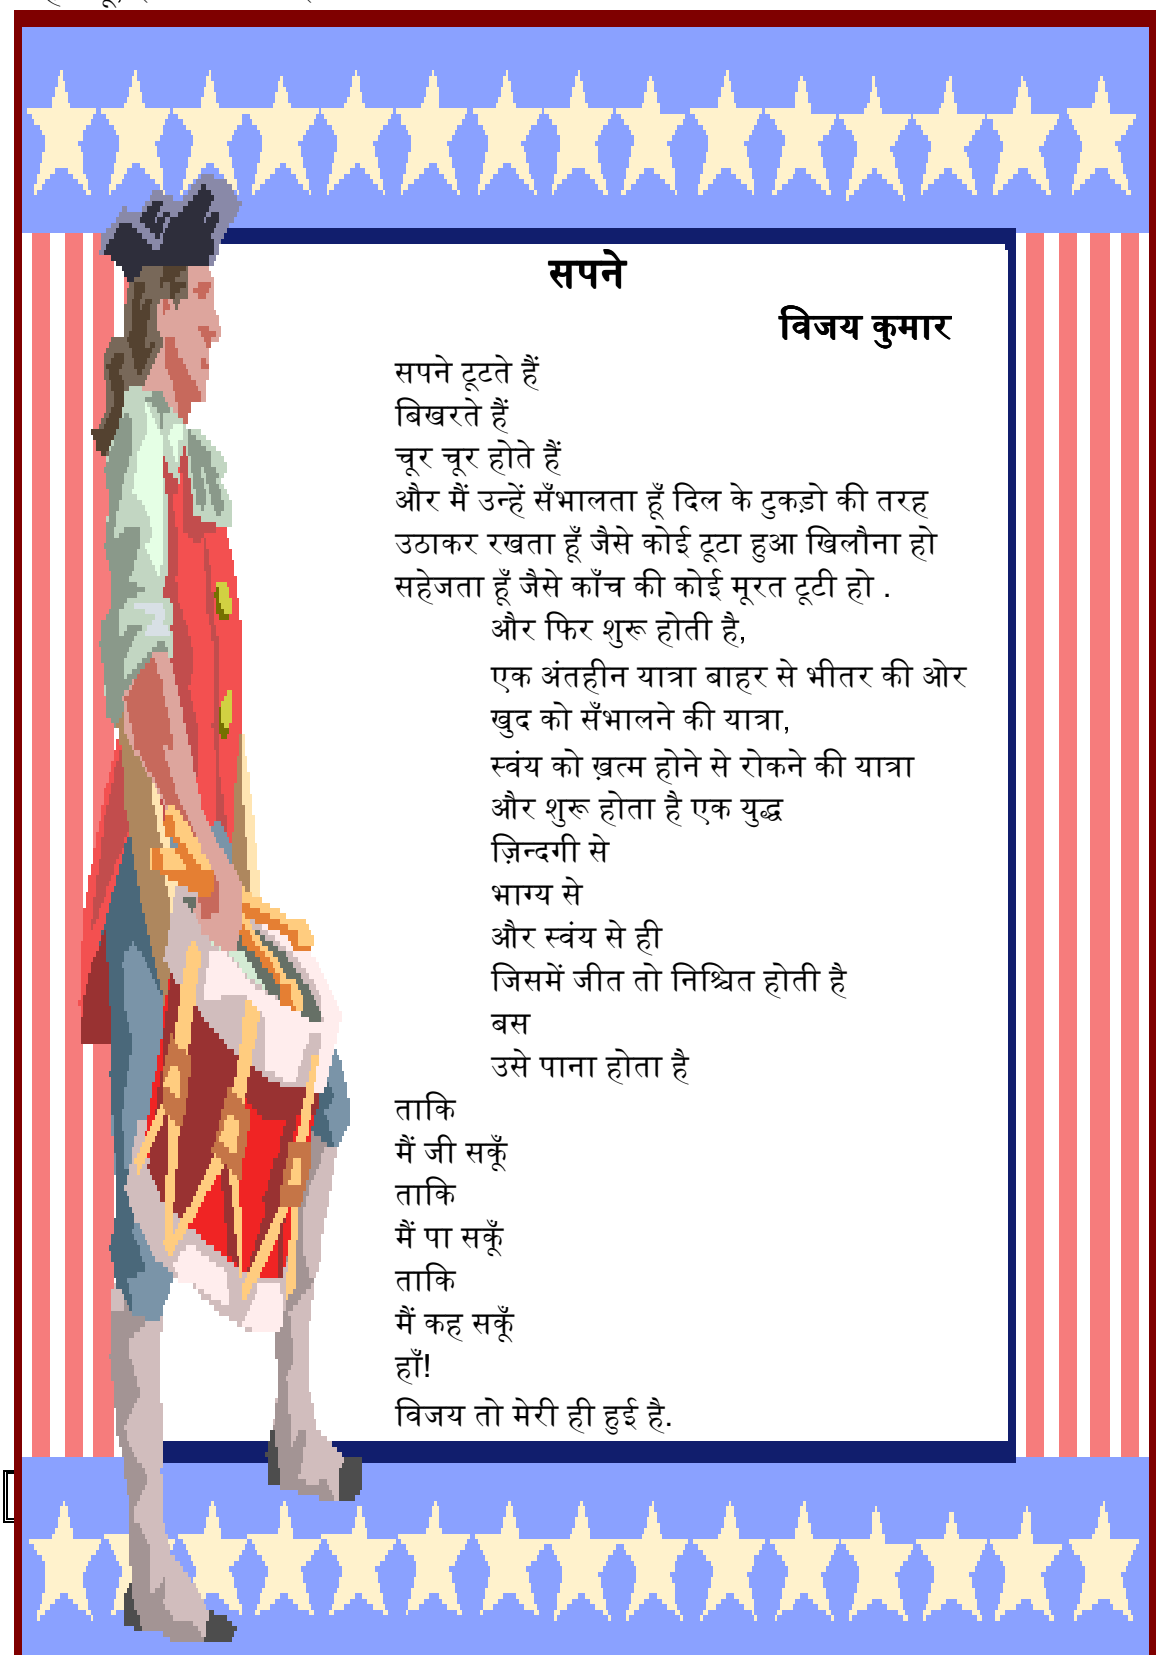 सपने
विजय कुमार
सपने टूटते हैं
बिखरते हैं
चूर चूर होते हैं
और मैं उन्हें सँभालता हूँ दिल के टुकड़ो की तरह
उठाकर रखता हूँ जैसे कोई टूटा हुआ खिलौना हो
सहेजता हूँ जैसे काँच की कोई मूरत टूटी हो .
और फिर शुरू होती है,
एक अंतहीन यात्रा बाहर से भीतर की ओर
खुद को सँभालने की यात्रा,
स्वंय को ख़त्म होने से रोकने की यात्रा
और शुरू होता है एक युद्ध
ज़िन्दगी से
भाग्य से
और स्वंय से ही
जिसमें जीत तो निश्चित होती है
बस
उसे पाना होता है
ताकि
मैं जी सकूँ
ताकि
मैं पा सकूँ
ताकि
मैं कह सकूँ
हाँ!
विजय तो मेरी ही हुई है.